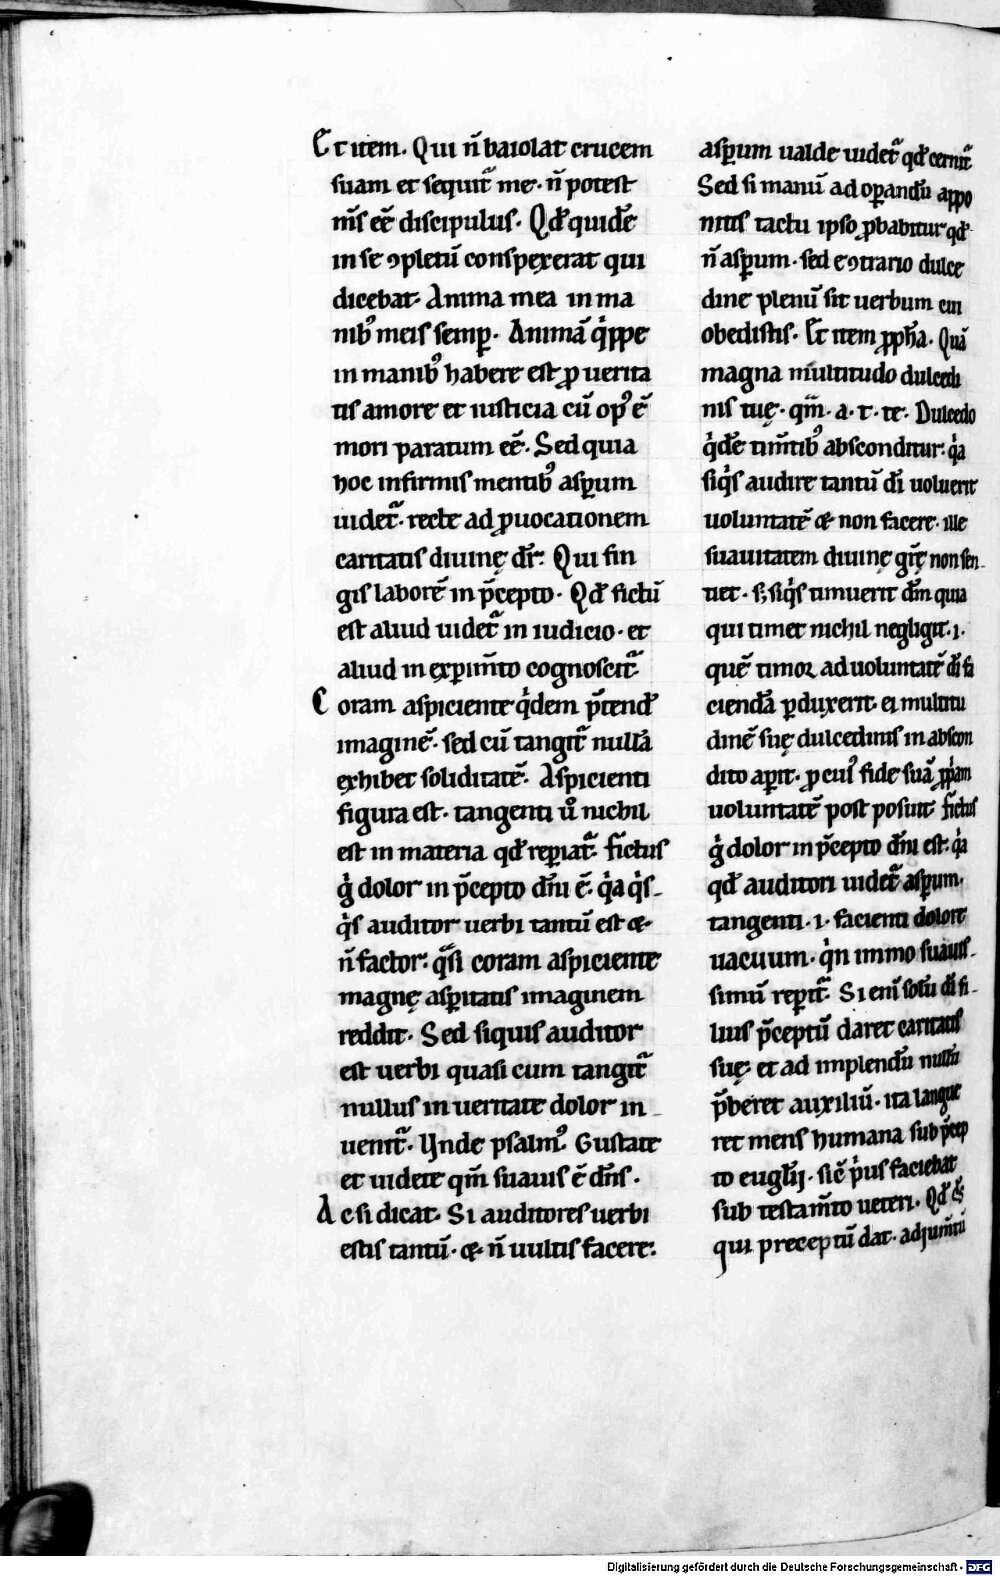 Et item. Qui n̄ baiolat crucem
suam et sequit᷑ me. n̄ potest
m̄s ēe discipulus. Qđ quidē
in se ꝯpletū conspexerat qui
dicebat. Anima mea in ma
nibꝰ meis semꝑ. Animā qͥppe
in manibꝰ habere est ꝓ uerita
tis amore et iusticia cū opꝰ ē
mori paratum ēe. Sed quia
hoc infirmis mentibꝰ asꝑum
uidet᷑. recte ad ꝓuocationem
caritatis diuinę dr̄. Qui fin
gis laborē in p̄cepto. Qđ fictū
est aliud uidet᷑ in iudicio. et
aliud in exꝑim̄to cognoscit᷑.
Coram aspiciente qͥdem p̄tend̄
imaginē. sed cū tangit᷑ nullā
exhibet soliditatē. Aspicienti
figura est. tangenti uͦ nichil
est in materia qđ reꝑiat᷑. fictus
gͥ dolor in p̄cepto dn̄i ē. qͥa qͥs
qͥs auditor uerbi tantū est &
n̄ factor. qͣsi coram aspiciente
magnę asꝑitatis imaginem
reddit. Sed siquis auditor
est uerbi quasi cum tangit᷑
nullus in ueritate dolor in
uenit᷑. Unde psalmꝰ. Gustate
et uidete qm̄ suauis ē dn̄s.
Ac si dicat. Si auditores uerbi
estis tantū. & n̄ uultis facere.
asꝑum ualde uidet᷑ qđ cernit᷑
Sed si manū ad oꝑandū appo
nitis tactu ipso ꝓbabitur qđ
n̄ asꝑum. sed e ꝯtrario dulce
dine plenū sit uerbum cui
obedistis. Et item ꝓph̄a. Quā
magna multitudo dulcedi
nis tuę. qm̄. a. t. te. Dulcedo
qͥdē tim̄tibꝰ absconditur. qͥa
siqͥs audire tantū dī uoluerit
uoluntatē & non facere. ille
suauitatem diuinę gr̄ę non sen
tiet. s; siqͥs timuerit dm̄ quia
qui timet nichil negligit. i.
quē timor ad uoluntatē dī fa
ciendā ꝑduxerit. ei multitu
dinē suę dulcedinis in abscon
dito aꝑit. ꝓ cuiꝰ fide suā ꝓpͥam
uoluntatē post posuit. fictus
gͥ dolor in p̄cepto dn̄i est. qͥa
qđ auditori uidet᷑ asꝑum.
tangenti. i. facienti dolore
uacuum. qͥn immo suauis
simū reꝑit᷑. Si enī solū dī fi
lius p̄ceptū daret caritatis
suę. et ad implendū nullū
p̄beret auxiliū. ita langue
ret mens humana sub p̄cep
to euglīj. sic̄ pͥus faciebat
sub testam̄to ueteri. Qđ
qui preceptū dat. adjum̄tū